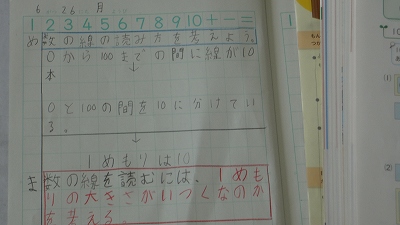 6 26 月
1 2 3 4 5 6 7 8 9 10 + - =
め 数の線の読み方を考えよう。
0から100までの間に線が10
本
↓
0と100の間を10に分けてい
る。
↓
1めもりは10
ま 数の線を読むには、1めも
りの大きさがいくつなのか
を考える。
1
①
②